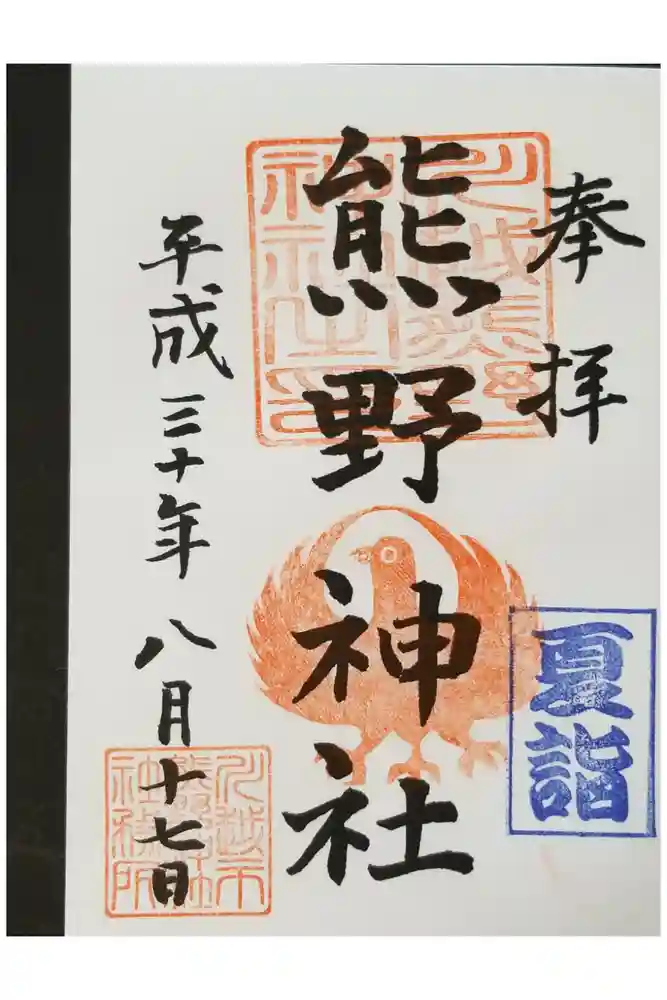 奉拝
夏詣
川越熊野
神社之印
熊野神社
平成三十年八月十七日
川越市
熊野神社
社務所